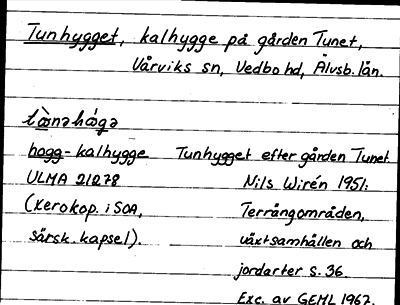 Tunhygget, kalhygge på gården Tunet,
Vårviks sn, Vedbo hd, Älvsb. län.
hogg-kalhygge Tunhygget efter gården Tunet
ULMA 21278 Nils Wirén 1951:
(xerokop. i SOA, Terrängområden,
särsk. kapsel). växtsamhällen och
jordarter s. 36.
Exc. av GEML 1967.